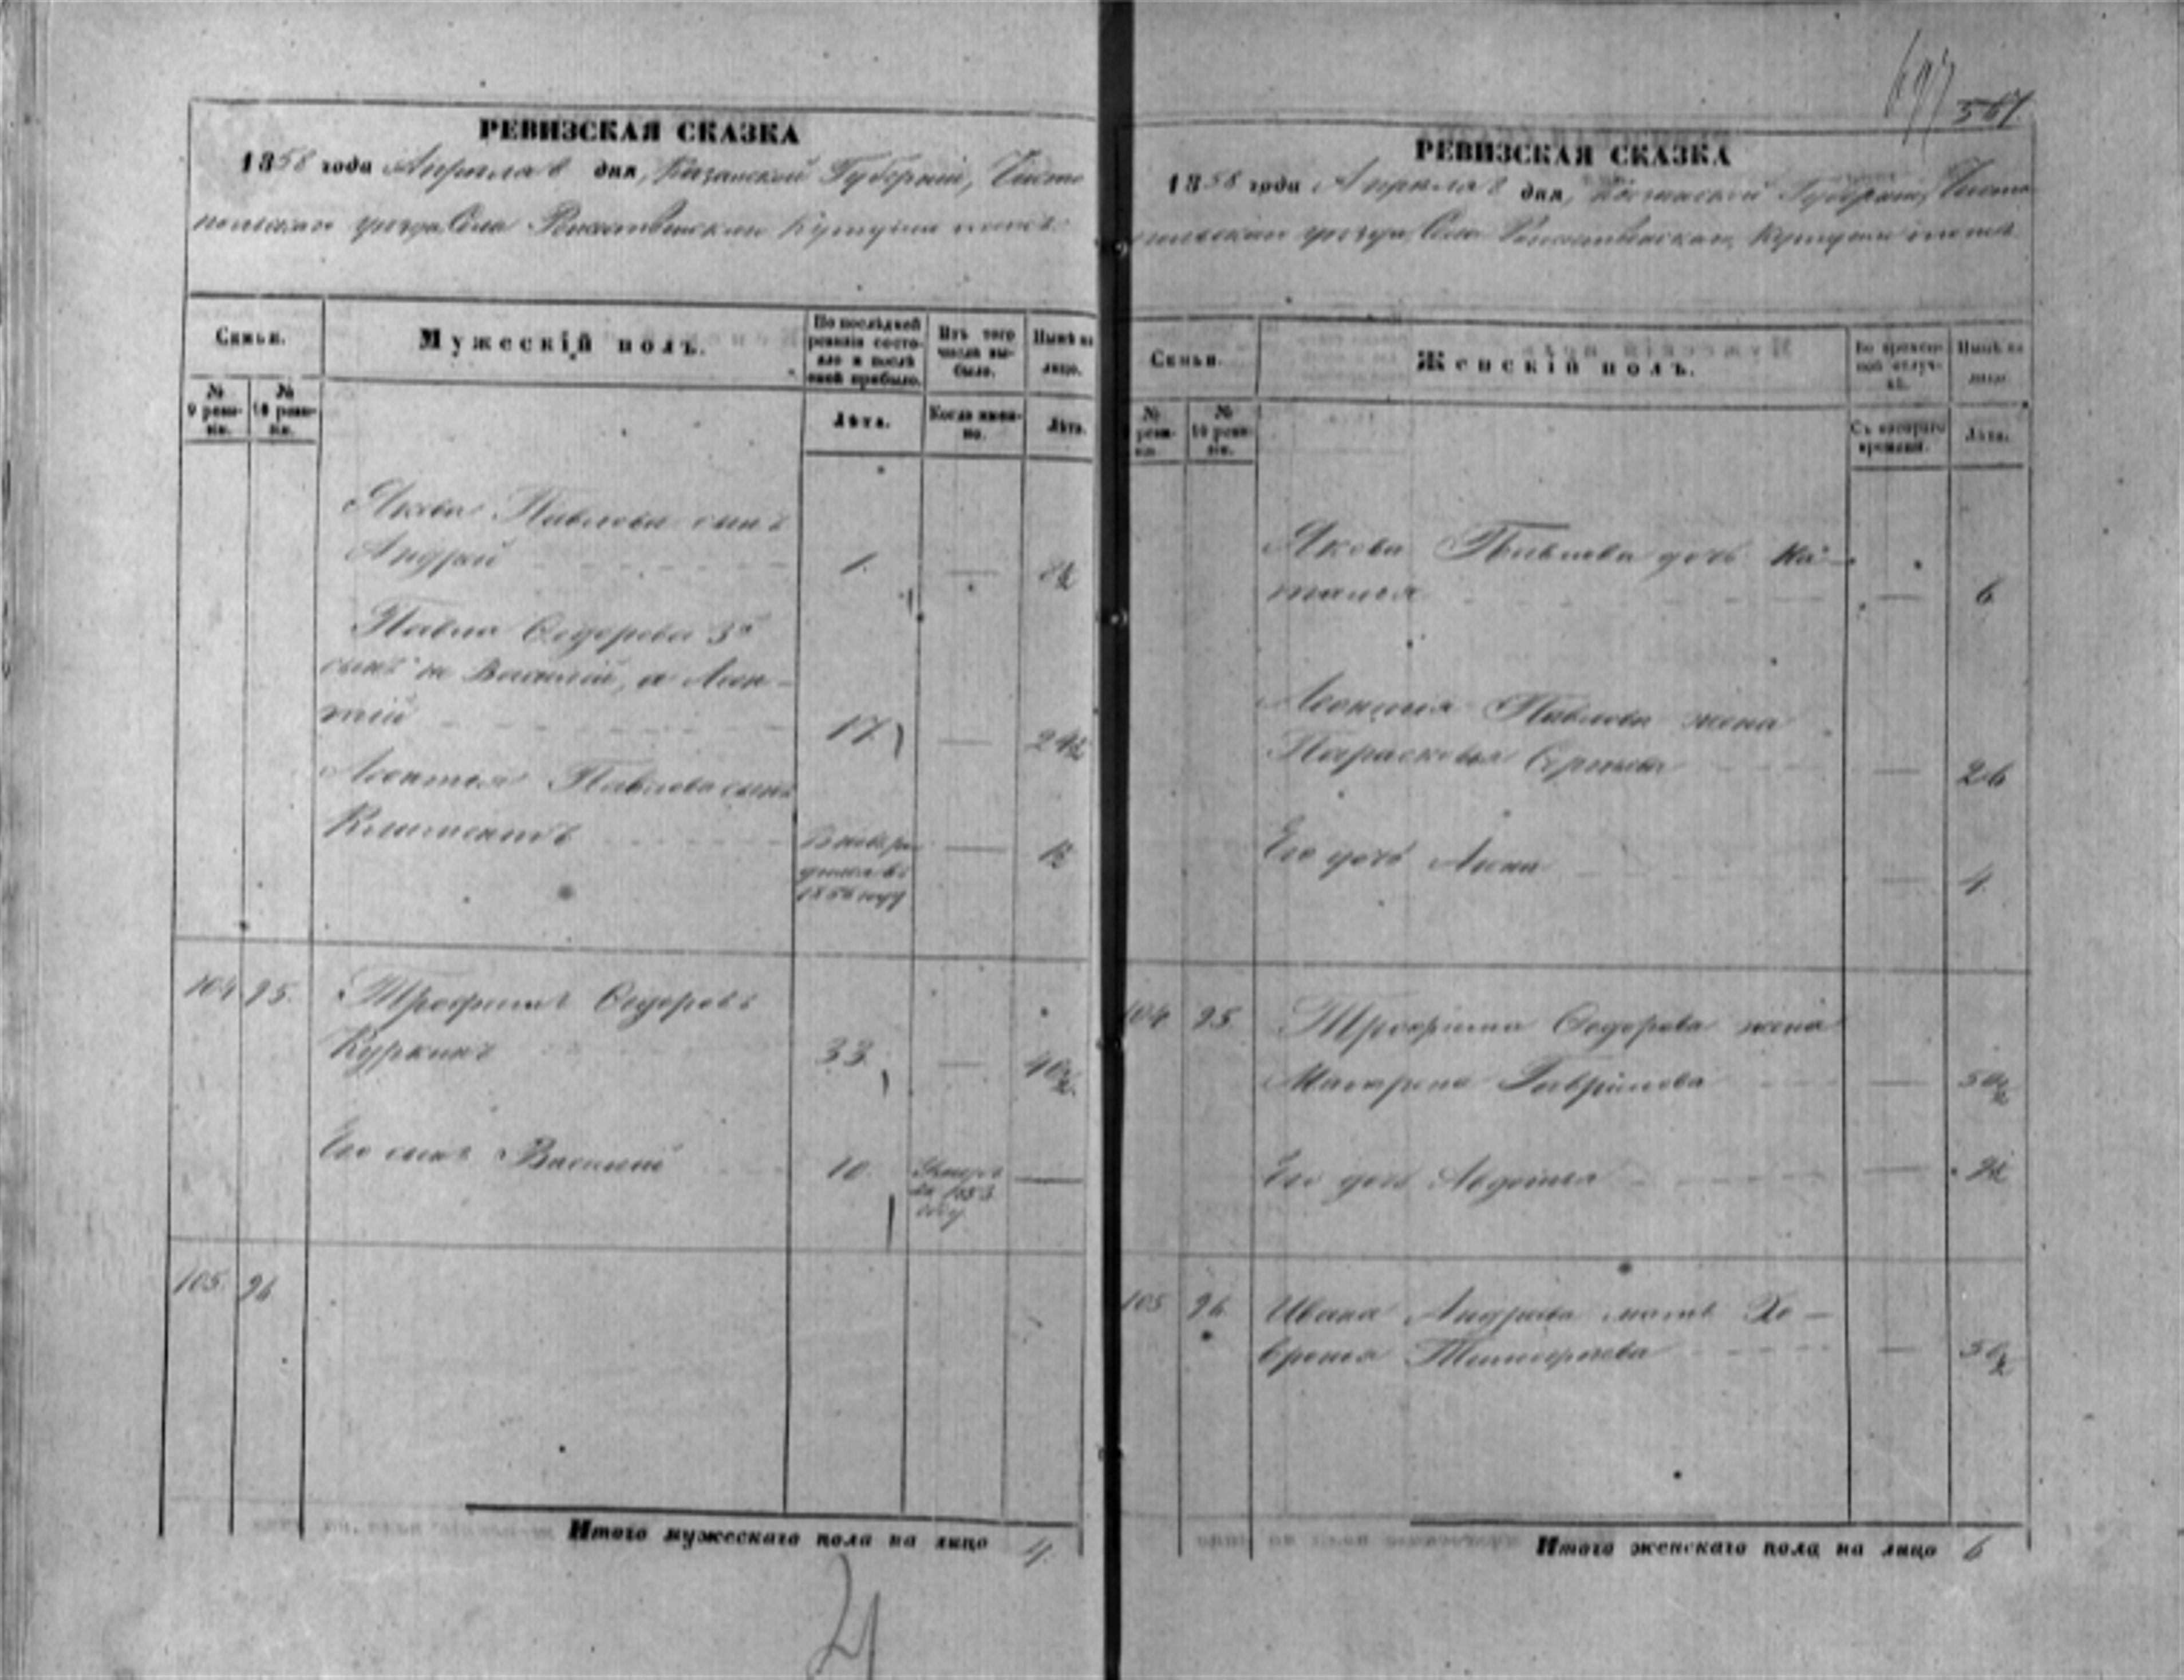 697 567.
РЕВИЗСКАЯ СКАЗКА
1858 года Апреля 8 дня, Казанской Губерніи, Чисто
польскаго уезда Села Рождественскаго Кутушъ тожъ
Семьи.
Мужескій полъ.
По последней ревизіи состояло и после оной прибыло.
Изъ того числа выбыло.
Ныне на лицо.
№ 9 ревизіи.
№ 10 ревизіи.
Лета.
Когда именно.
Лета.
Якова Павлова сынъ
Андрей 1. — 8½
Павла Федорова 3й
сынъ не Василій, а Леон-
тій 17 — 24½
Леонтья Павлова сынъ
Климентъ — 1½
1856 году
104 95. Трофимъ Федоровъ
Куркинъ 33. — 40½
Его сынъ Василій 10. Умеръ въ 1853 году —
105. 96
Итого мужескаго пола на лицо 4.
4
РЕВИЗСКАЯ СКАЗКА
1858 года Апреля 8 дня, Казанской Губерніи, Чисто
польскаго уезда, Села Рождественскаго, Кутушъ тожъ
Семьи.
Женскій полъ.
Во временной отлучке.
Ныне на лицо.
№ ревизіи.
№ 10 ревизіи.
Съ котораго времени.
Лета.
Якова Павлова дочь На-
талья — 6
Леонтія Павлова жена
Парасковья Сергеева — 26
Его дочь Анна — 4.
104 95 Трофима Федорова жена
Матрена Гаврилова — 50½
Его дочь Авдотья — 9½
105 96 Ивана Андреева мать Хе-
вронья Тимофеева — 50½
Итого женскаго пола на лицо 6